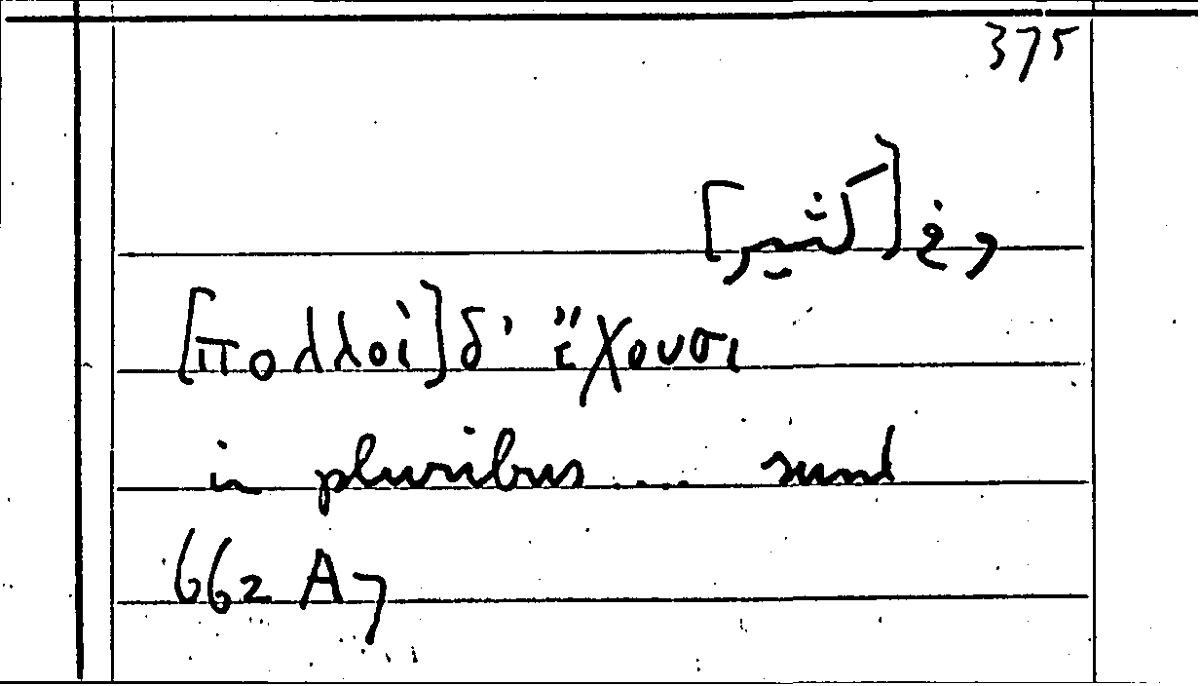 375
وفى [كثير]
[πολλοὶ] δ' ἔχουσι
in pluribus .... sunt
662 A7